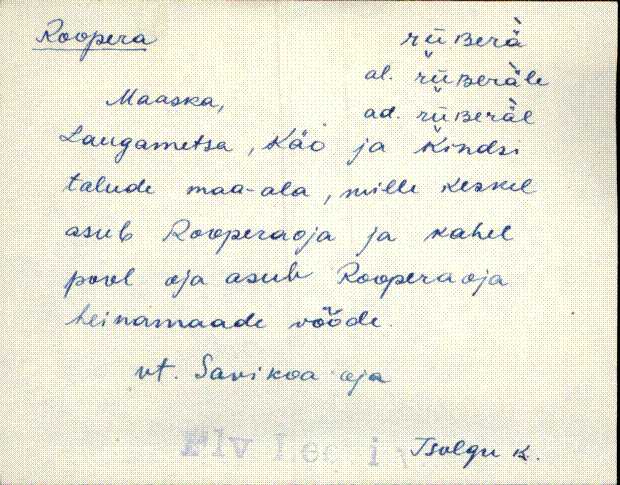 Roopera
rüʙerä̀
al. rüʙerä̀le
Maaska,
ad. rüʙerä̀l
Laugametsa, Käo ja Kindsi
talude maa-ala, mille keskel
asub Rooperaoja ja kahel
pool oja asub Rooperaoja
heinamaade vööde.
vt. Savikoa oja
Tsolgu k.